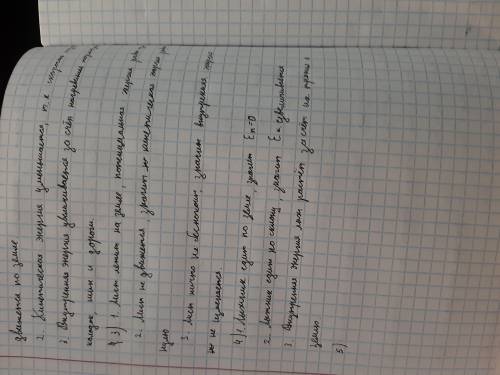 движется по земле
2. Кинетическая энергия уменьшается, т.к скорость
3. Внутренняя энергия увеличивается за счёт нагревания
колодок, шин и дороги.
3) 1. Лист лежит на земле, потенциальная энергия
2. Лист не движется, значит кинетическая энергия
нулю
3 Лист ничто не беспокоит, значит внутренняя
не изменяется
4) 1. Лыжник едит по земле, значит Eп=0
2 Лыжник едит по склону, значит Eк увеличивается
3. Внутренняя энергия лыж растёт за счёт их трения
землю
5)